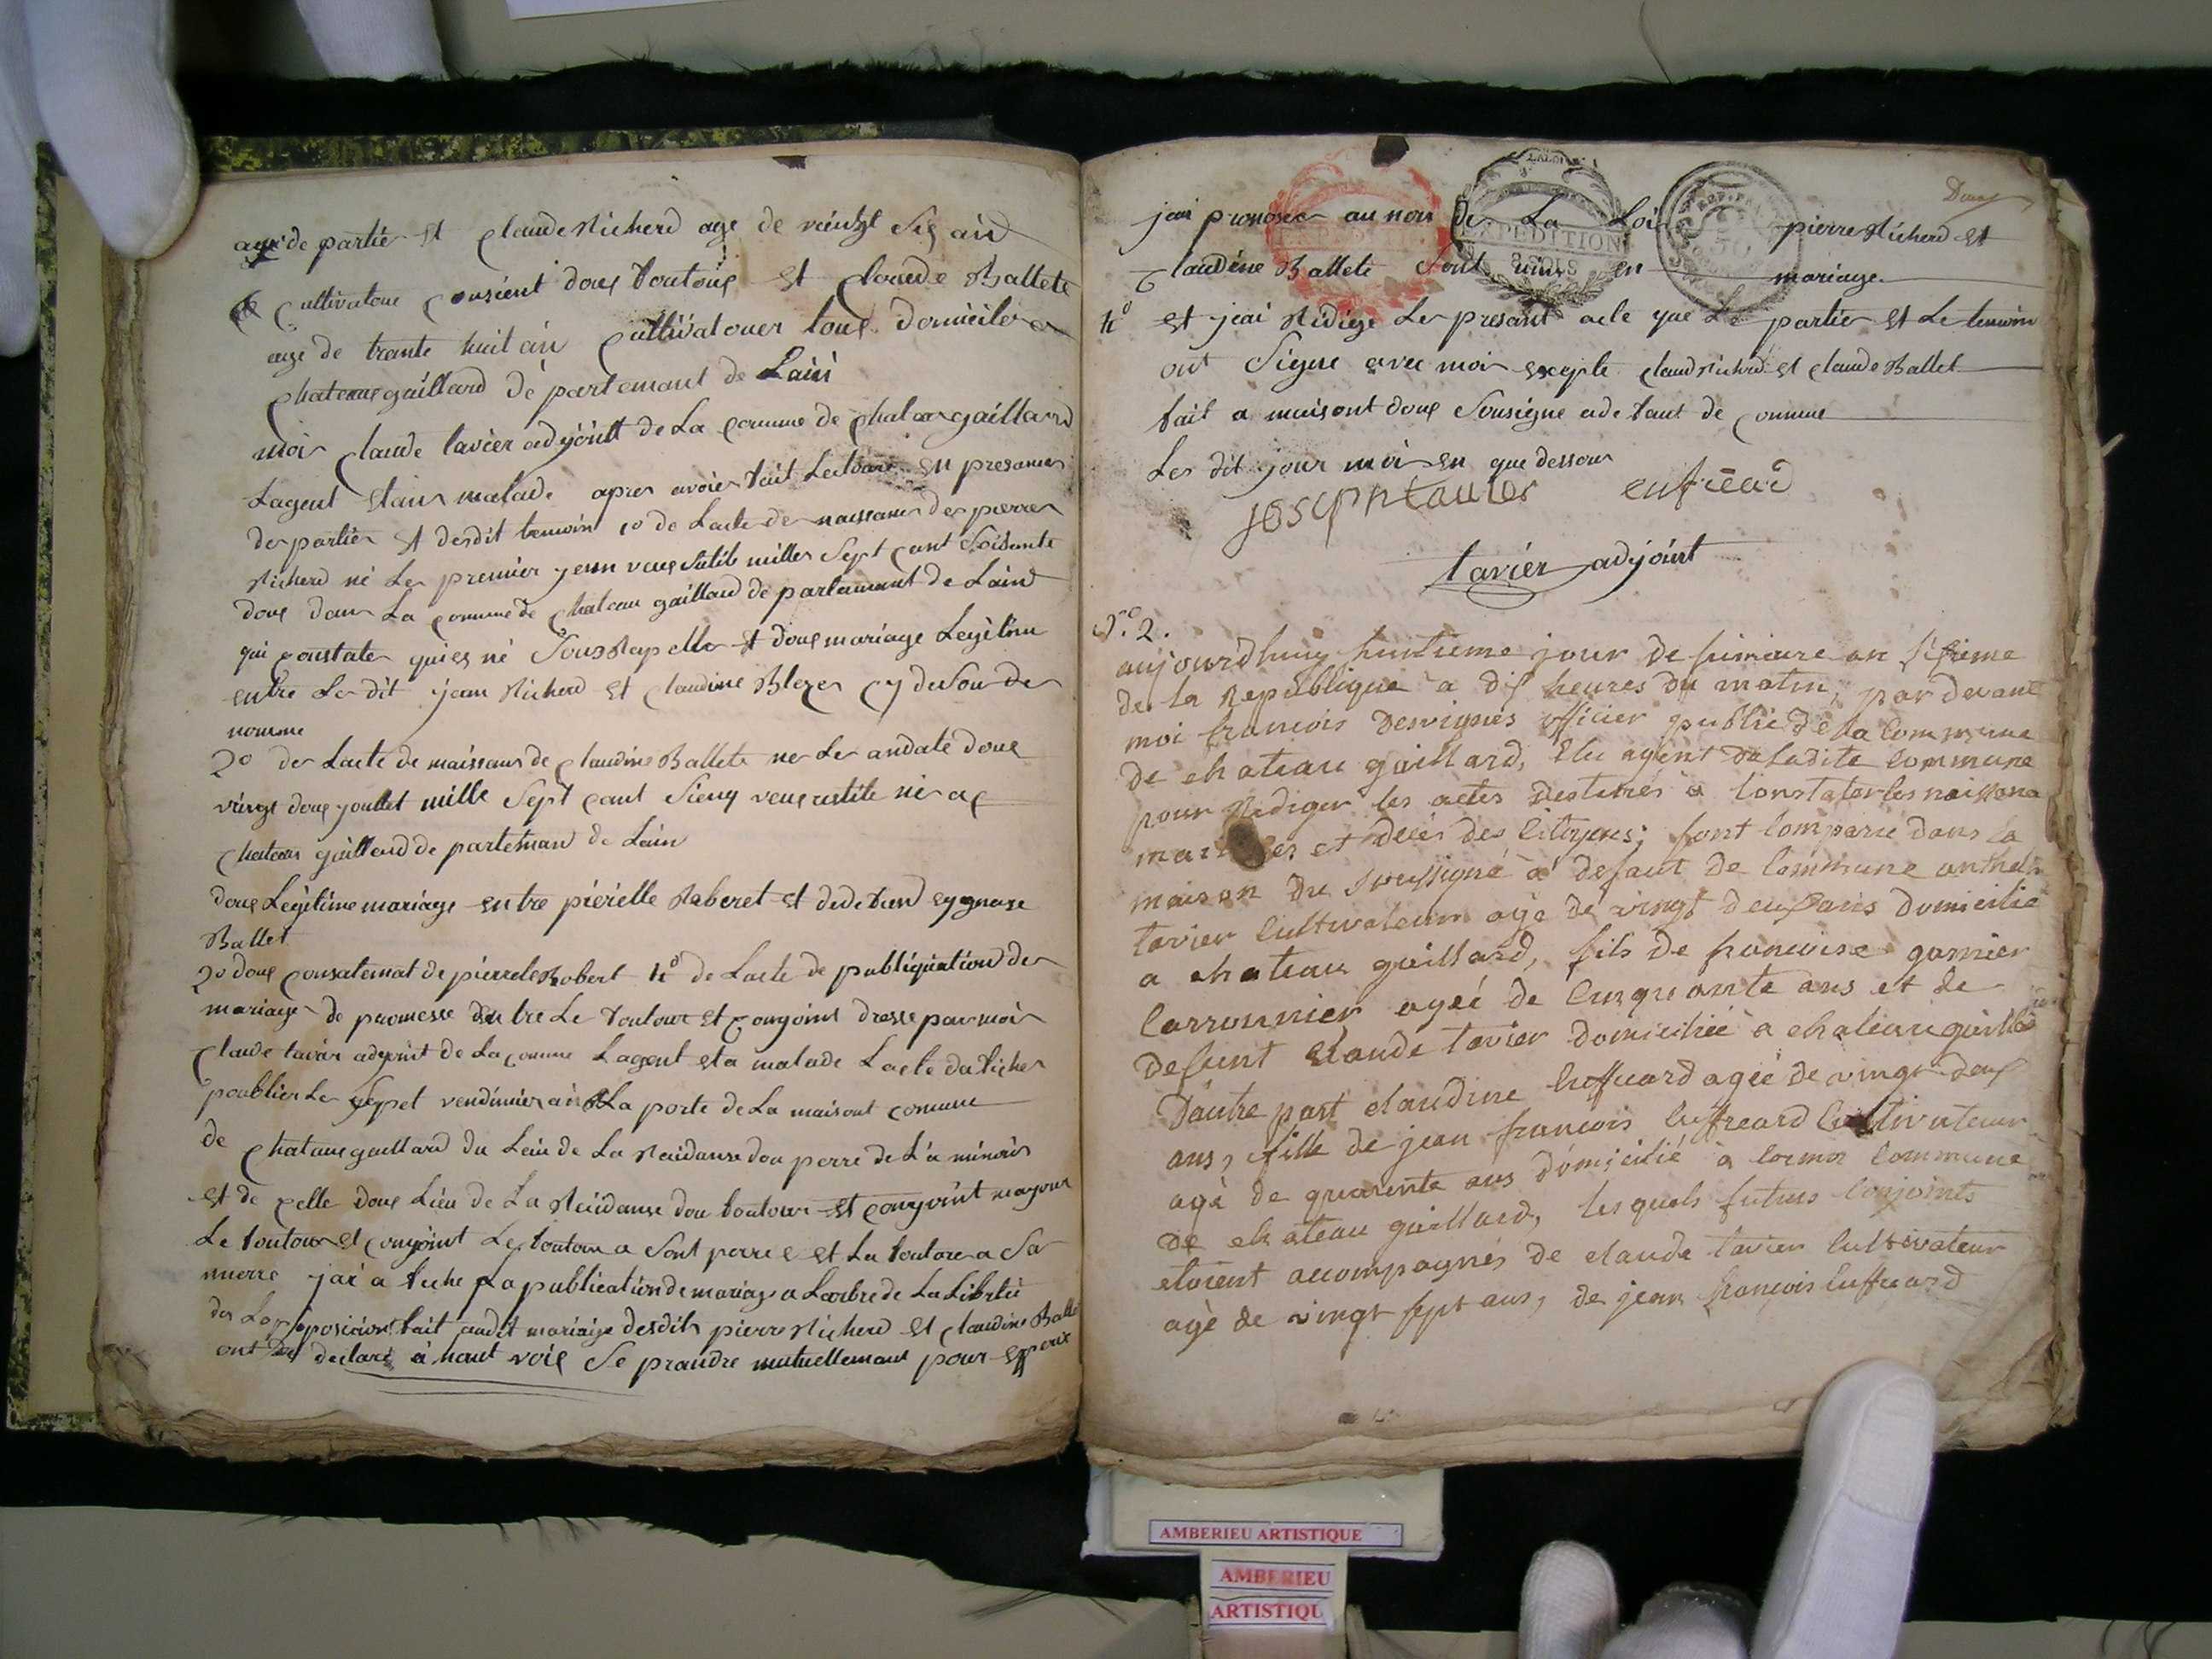 age de partie et claude Richerd age de veingt Sis an
cultivatour cousient dous toutous et claude Ballete
age de trante huit an cultivatouer tous domicile a
chataue gaillard dé partemant de Lain
moi claude tavier adjoint de La comune de chataugaillard
Lagent etans malade apres avoier fait Lectoure en presance
des partiés et desdit temoin 1º de Lacte de naissance de pierre
Richerd né Le premier
dous dans La comune de chateau gaillard de partamant de Laind
qui constate qui es né et dous mariage Legitime
entre Le dit jean Richerd et claudine
nomme
2º de Lacte de naissans de claudine Ballete ne Le
veingt dous joullet mille Sept cant né a
chateau gaillard de parteman de Lain
dous Legitime mariage entre Raberet et
Ballet
de pierrele Robert 4º de Lacte de publiquation de
mariage de promesse entre Le toutour et conjoint dresse par moi
claude tavier adjoint de La comune Lagent eta malade Lacte dafiche
poublier Le vendimier La porte de La maisont comune
de chataue gaillard du de La Raidanse dou perre de La
et de celle dous Lieu de La Raidanse dou toutour et conjoint majour
Le toutour et conjoint Le toutour a Sont perre et La toutore a Sa
merre jai a fiche La publication de mariage a Larbre de La Liberté
fait audit mariage desdits pierre Richerd et claudine Balle
ont declaré a haut vois Se prandre mutuellemant pour
Deux
jai prononce au nom de La Loi pierre Richerd et
claudine Ballete Sont unis en mariage
4º et jai Redige Le presant acte que Le partie et Le temoin
ont Signe avec moi excepte claud Richerd et claude Ballet
fait a maisont dous Sousigne a de faut de comune
Les dit jour moi en que dessous
joseph tavier
tavier adjoint
EXPEDITION
8 SOLS
Nº. 2.
aujourdhuy huitieme jour de frimaire an sisieme
de la Republique a dis heures du matin, par devant
moi francois Desvignes officier public de la commune
de chateau gaillard, elu agent de ladite commune
pour Rediger les actes destinés à constater les naissance
et décés des citoyens; sont comparu dans la
maison du soussigné à defaut de commune
tavier cultivateur agé de vingt deux ans domicilié
a chateau gaillard, fils de francoise garnier
agée de cinquante ans et de
defunt claude tavier domiciliée a chateau gaillard
D'autre part claudine cuffuard agée de vingt deux
ans, fille de jean francois cuffreard cultivateur
agé de quarente ans domicilié à cormoz commune
de chateau gaillard, lesquels futurs conjoints
etoient accompagnés de claude tavier cultivateur
agé de vingt sept ans, de jean francois cuffuard
AMBERIEU ARTISTIQUE
AMBERIEU
ARTISTIQU